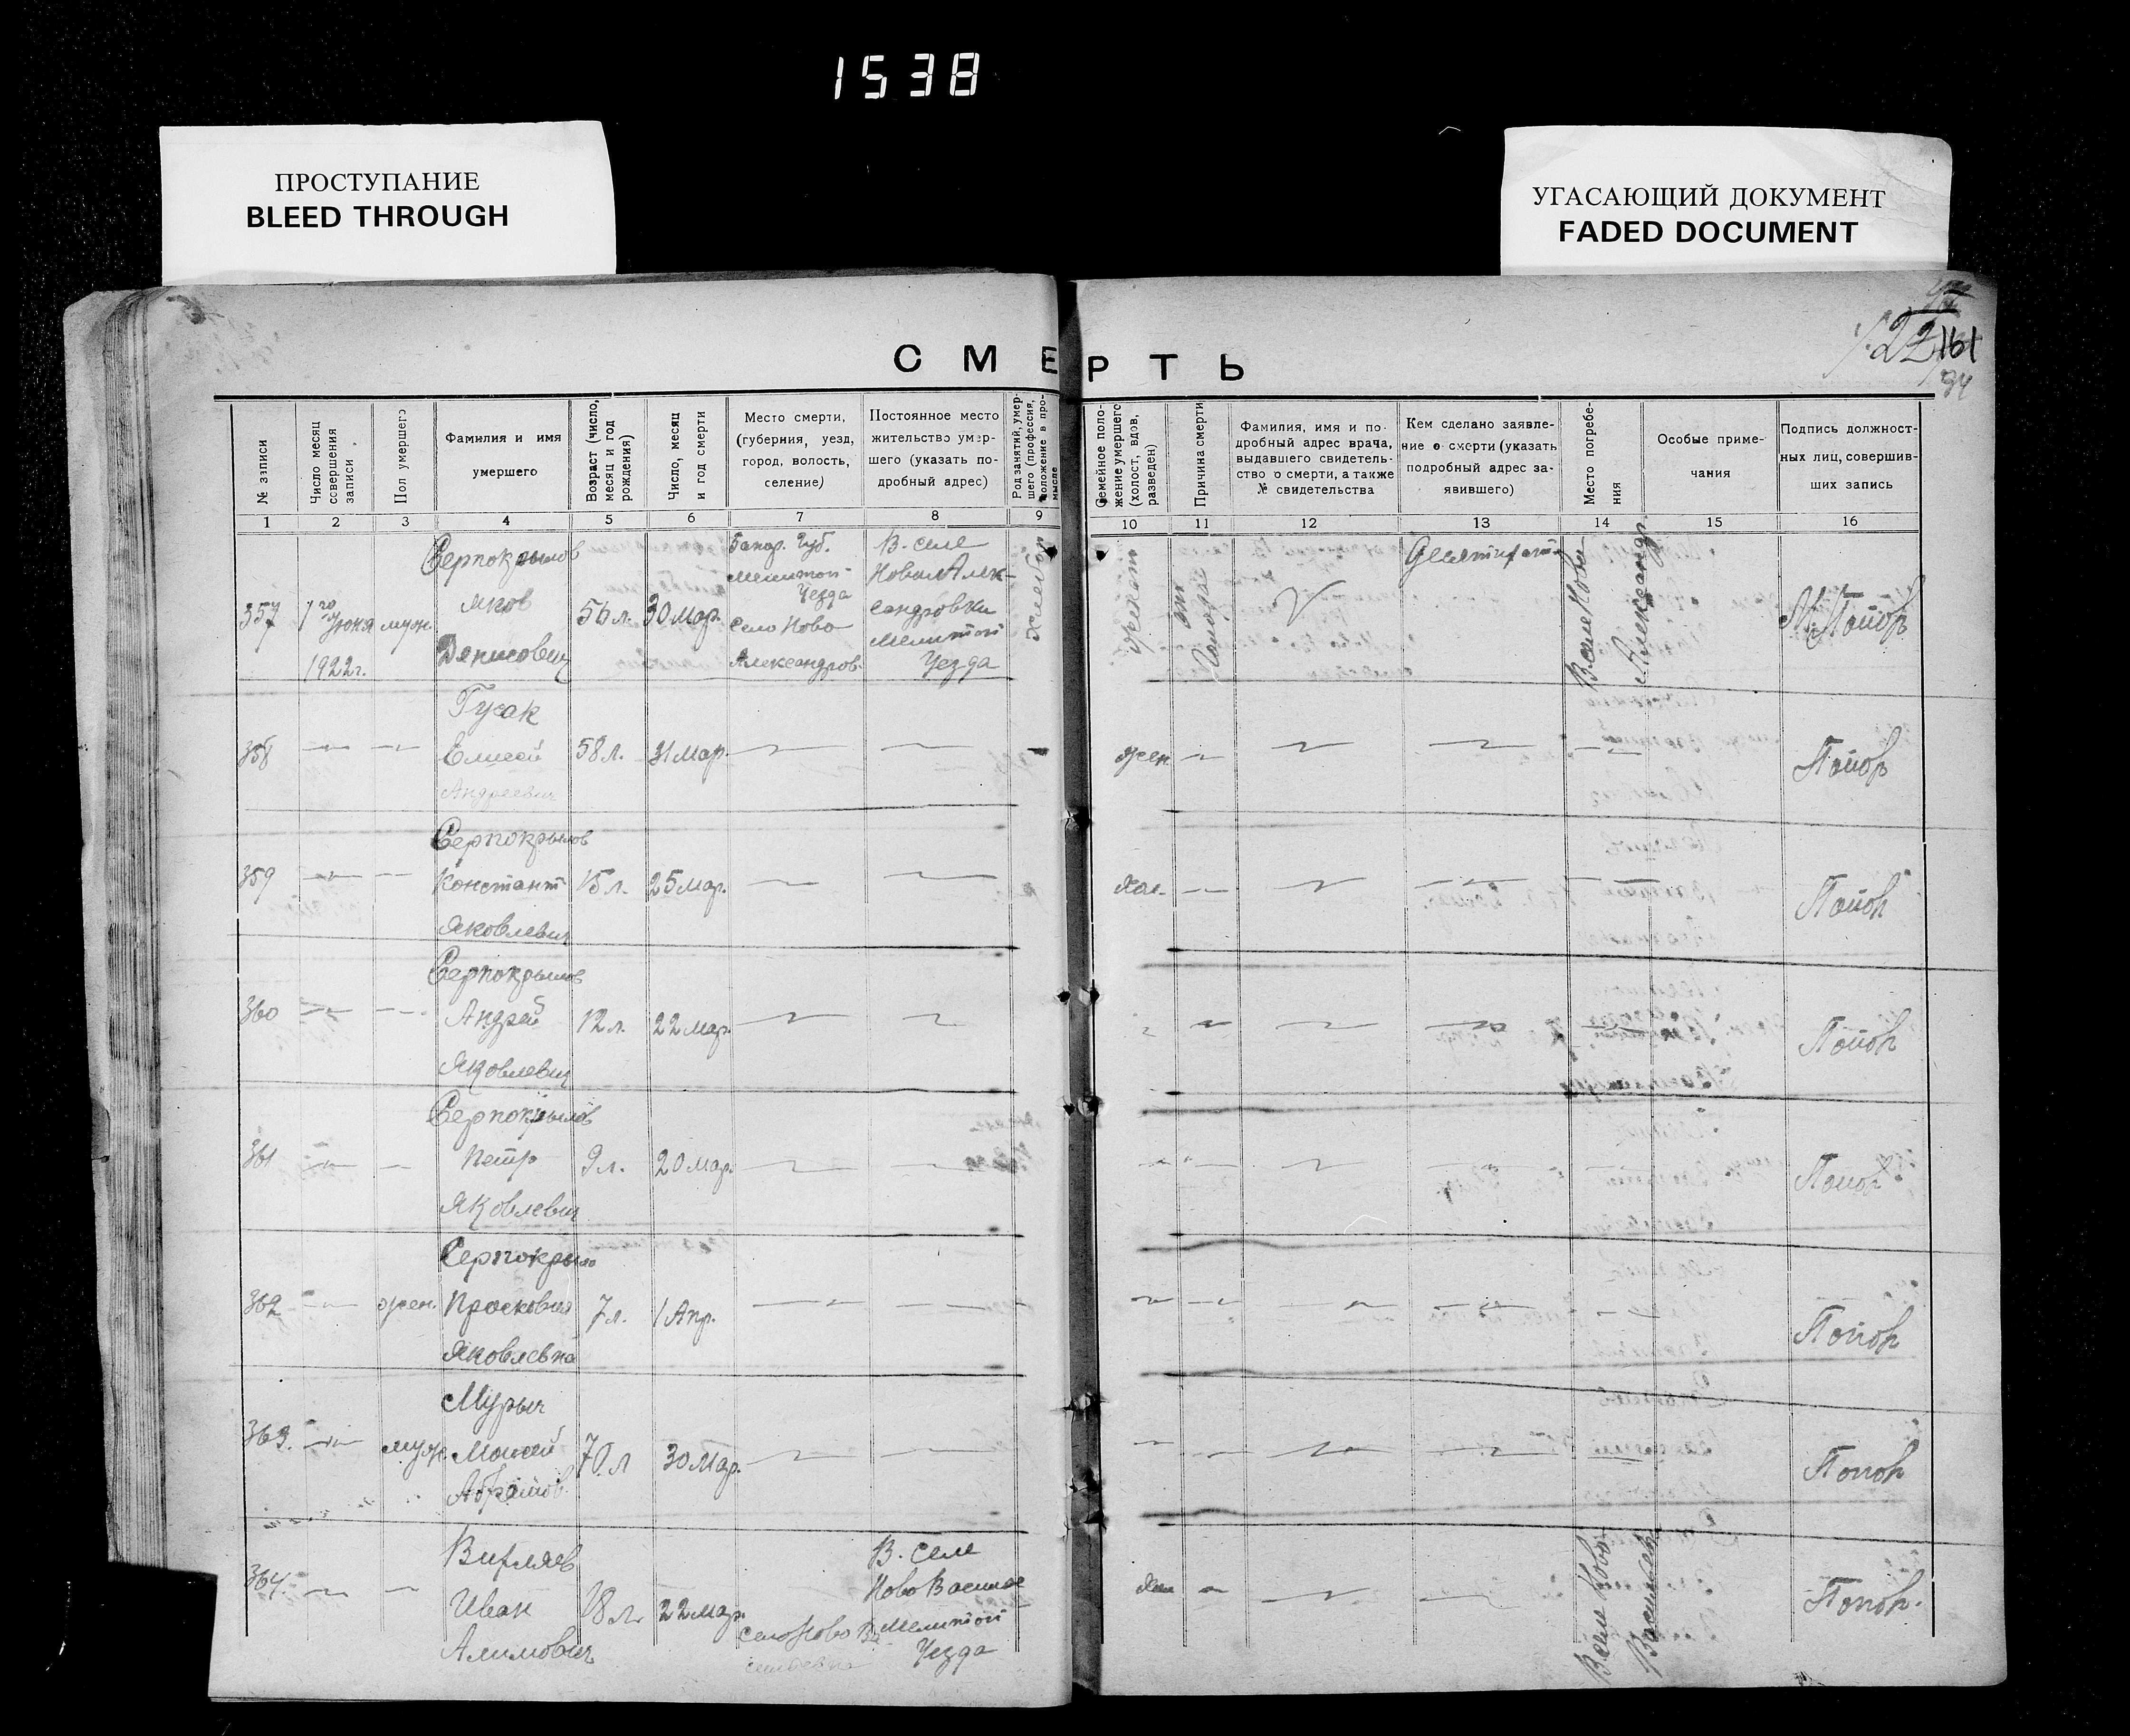 1538
ПРОСТУПАНИЕ
BLEED THROUGH
УГАСАЮЩИЙ ДОКУМЕНТ
FADED DOCUMENT
161
94
СМЕРТЬ
№ записи
Число месяц
совершения
записи
Пол умершего
Фамилия и имя
умершего
Возраст (число,
месяц и год
рождения)
Число, месяц
и год смерти
Место смерти,
(губерния, уезд,
город, волость,
селение)
Постоянное место
жительство умер-
шего (указать по-
дробный адрес)
Род занятий, умер-
шего (профессия,
положение в про-
мысле
Семейное поло-
жение умершего
(холост, вдов,
разведен)
Причина смерти
Фамилия, имя и по-
дробный адрес врача,
выдавшего свидетель-
ство о смерти, а также
№ свидетельства
Кем сделано заявле-
ние о смерти (указать
подробный адрес за-
явившего)
Место погребе-
ния
Особые приме-
чания
Подпись должност-
ных лиц, совершив-
ших запись
1 2 3 4 5 6 7 8 9 10 11 12 13 14 15 16
357
1го Июня
1922г.
муж.
Серпокрылов
Яков
Денисович
56 л.
30 Мар.
Запор. Губ.
Мелитоп
Уезда
Село Ново
Александров.
В. селе
Новоалек-
сандровки
Мелитоп
Уезда
Хлебор
женат
от
В селе Ново
Александр.
358
Гусак
Елисей
Андреевич
58 л.
31 Мар.
жен
359
Серпокрылов
Константи
Яковлевич
15 л.
25 Мар.
Хол.
360
Серпокрылов
Андрей
Яковлевич
12 л.
22 Мар.
361
Серпокрылов
Петр
Яковлевич
9 л.
20 Мар.
362
жен.
Серпокрыло
Просковия
Яковлевна
7 л.
1 Апр.
363.
муж.
Мурыч
Моисей
Абрамов.
70 л
30 Мар.
364.
Иван
Алимович
18 л.
22 Мар.
Село Ново Ва
сильевка
В. Селе
Ново Василье
Мелитоп
Уезда
Хол
В селе Ново
Васильев